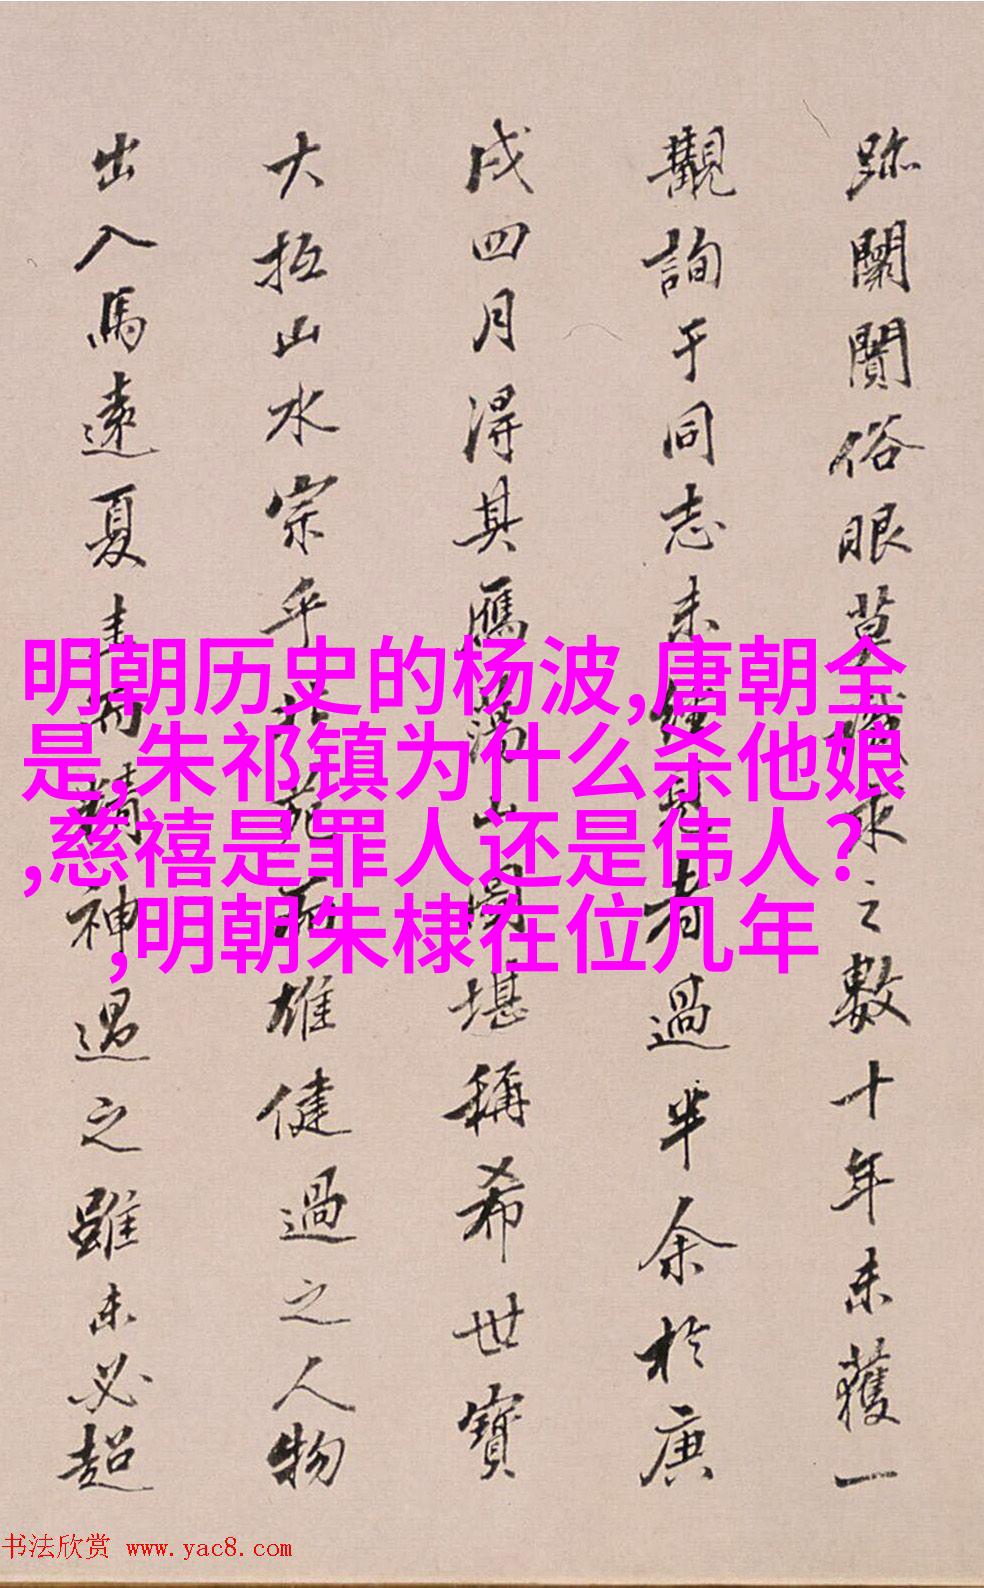 跡闤闠俗眼莫識求之數十年未獲一
觀詢于同志未經見者過半余於庚
戌四月淂其鴈蕩山圖堪稱希世寶
大抵山水宗乎北苑而雄健過之人物
出入馬遠夏圭而精神過之雖未必超
明朝历史的杨波,唐朝全
是,朱祁镇为什么杀他娘
,慈禧是罪人还是伟人?
,明朝朱棣在位几年
书法欣赏 www.yac8.com